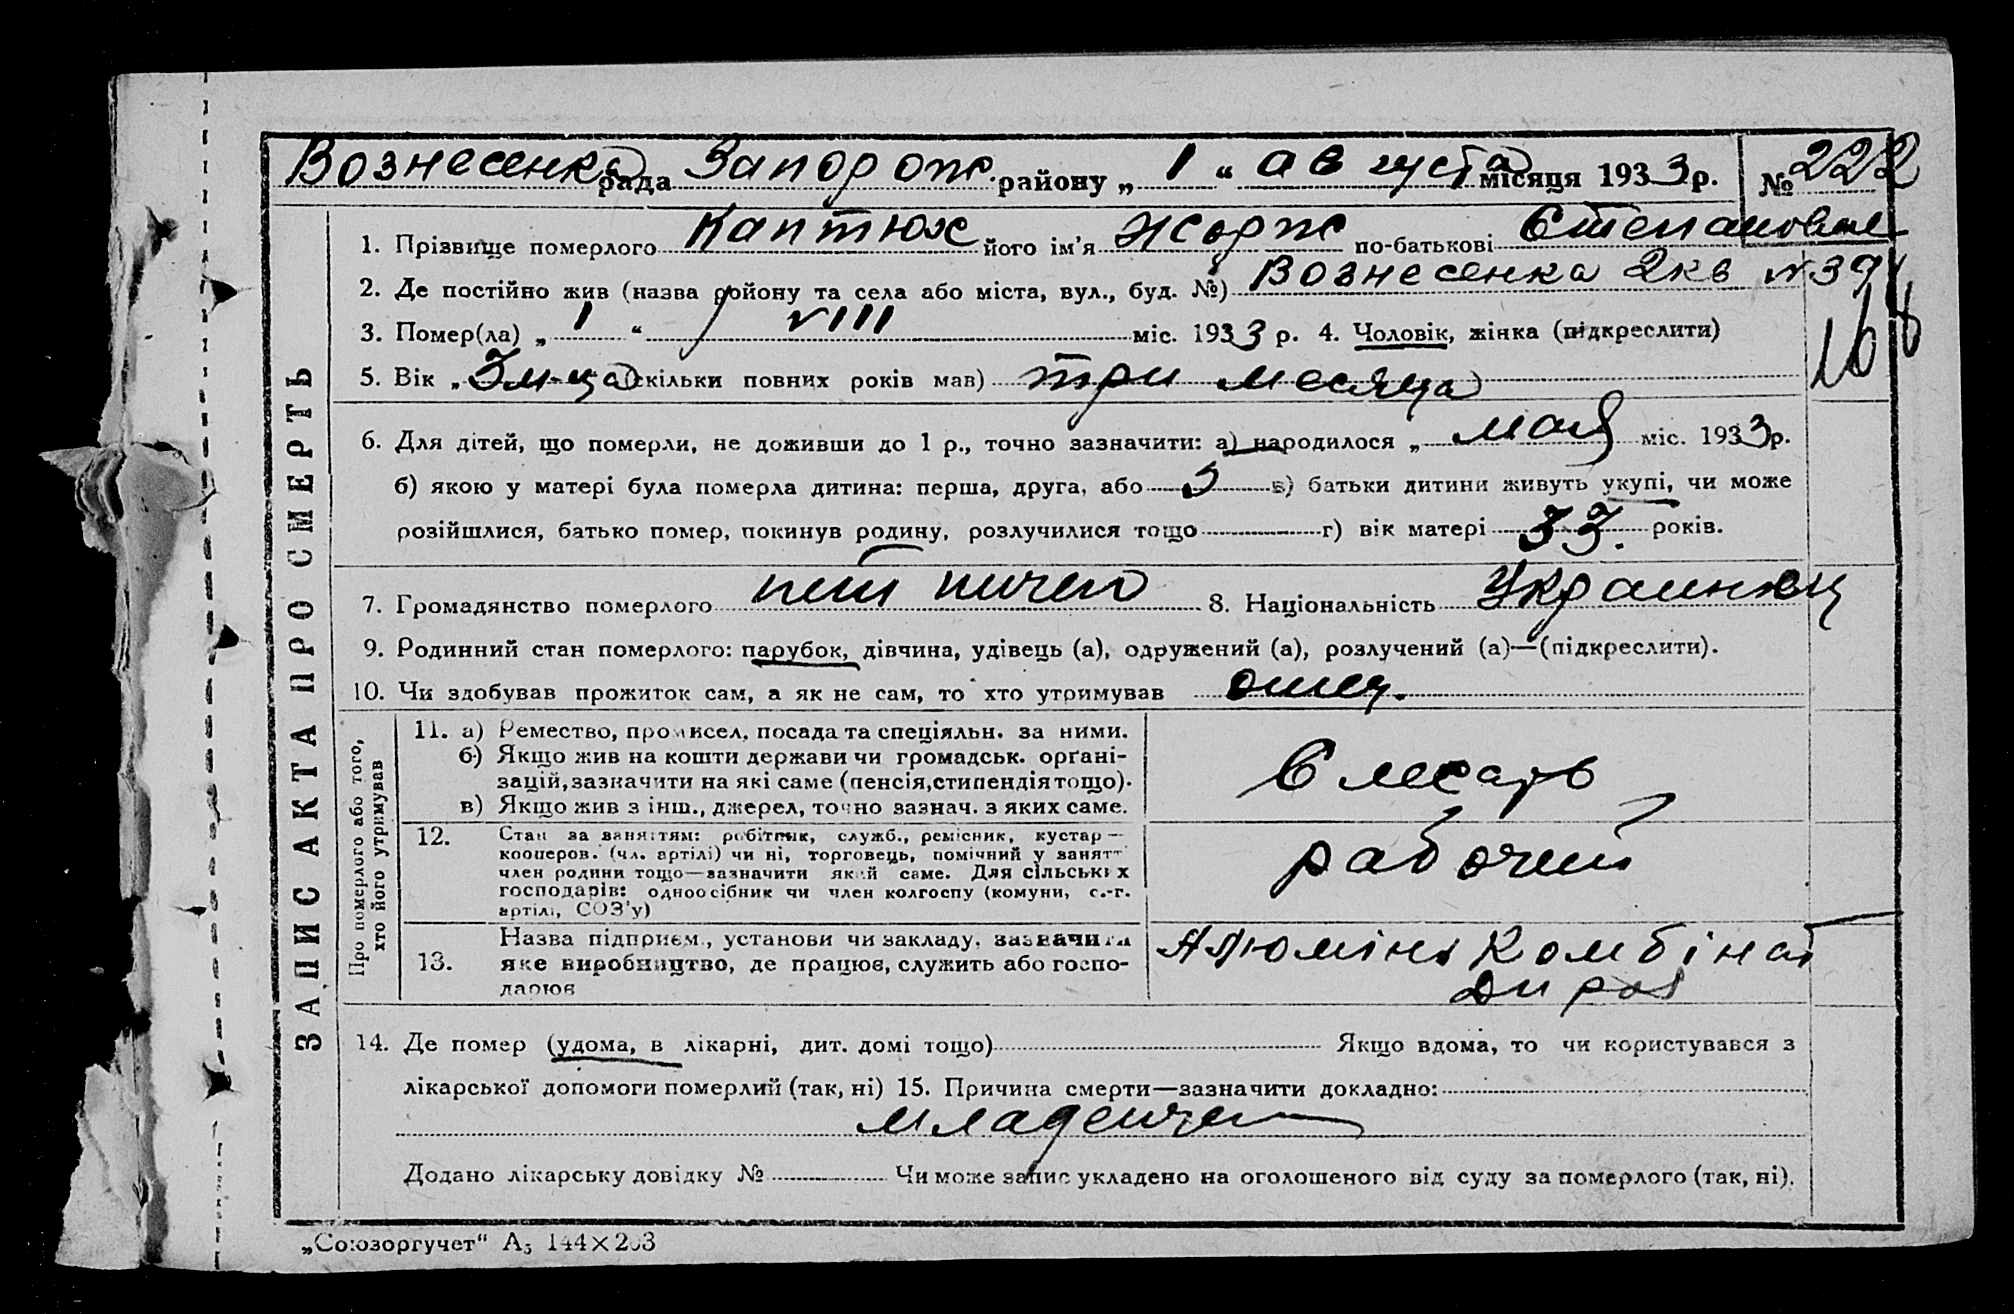 Вознесенка рада Запорож. району „ 1 “ августа місяця 1933 р. № 222
1. Прізвище померлого Каптюх його ім'я Жорж по-батькові Степанович
2. Де постійно жив (назва району та села або міста, вул., буд. №) Вознесенка 2кв №39
3. Помер(ла) „ 1 “ VIII міс. 1933 р. 4. Чоловік, жінка (підкреслити)
5. Вік „ 3 м-ца (скільки повних років мав) три месяца
6. Для дітей, що померли, не доживши до 1 р., точно зазначити: а) народилося „ мая міс. 1933 р.
б) якою у матері була померла дитина: перша, друга, або 3 в) батьки дитини живуть укупі, чи може
розійшлися, батько помер, покинув родину, розлучилися тощо г) вік матері 33. років.
7. Громадянство померлого 8. Національність Украинец
9. Родинний стан померлого: парубок, дівчина, удівець (а), одружений (а), розлучений (а)—(підкреслити).
10. Чи здобував прожиток сам, а як не сам, то хто утримував отец.
ЗАПИС АКТА ПРО СМЕРТЬ
Про померлого або того,
хто його утримував
11. а) Ремество, промисел, посада та спеціяльн. за ними.
б) Якщо жив на кошти держави чи громадськ. орґані-
зацій, зазначити на які саме (пенсія, стипендія тощо).
в) Якщо жив з інш., джерел, точно зазнач. з яких саме.
Слесарь
12. Стан за заняттям: робітник, служб., ремісник, кустар—
кооперов. (чл. артілі) чи ні, торговець, помічний у занятт
член родини тощо—зазначити який саме. Для сільських
господарів: одноосібник чи член колгоспу (комуни, с.-г.
артілі, СОЗ'у)
рабочий
13. Назва підприєм., установи чи закладу, зазначити
яке виробництво, де працює, служить або госпо-
дарює
Алюміні Комбінат
14. Де помер (удома, в лікарні, дит. домі тощо) Якщо вдома, то чи користувався з
лікарської допомоги померлий (так, ні) 15. Причина смерти—зазначити докладно:
младенчес
Додано лікарську довідку № Чи може запис укладено на оголошеного від суду за померлого (так, ні).
„Союзоргучет“ А₅ 144×203